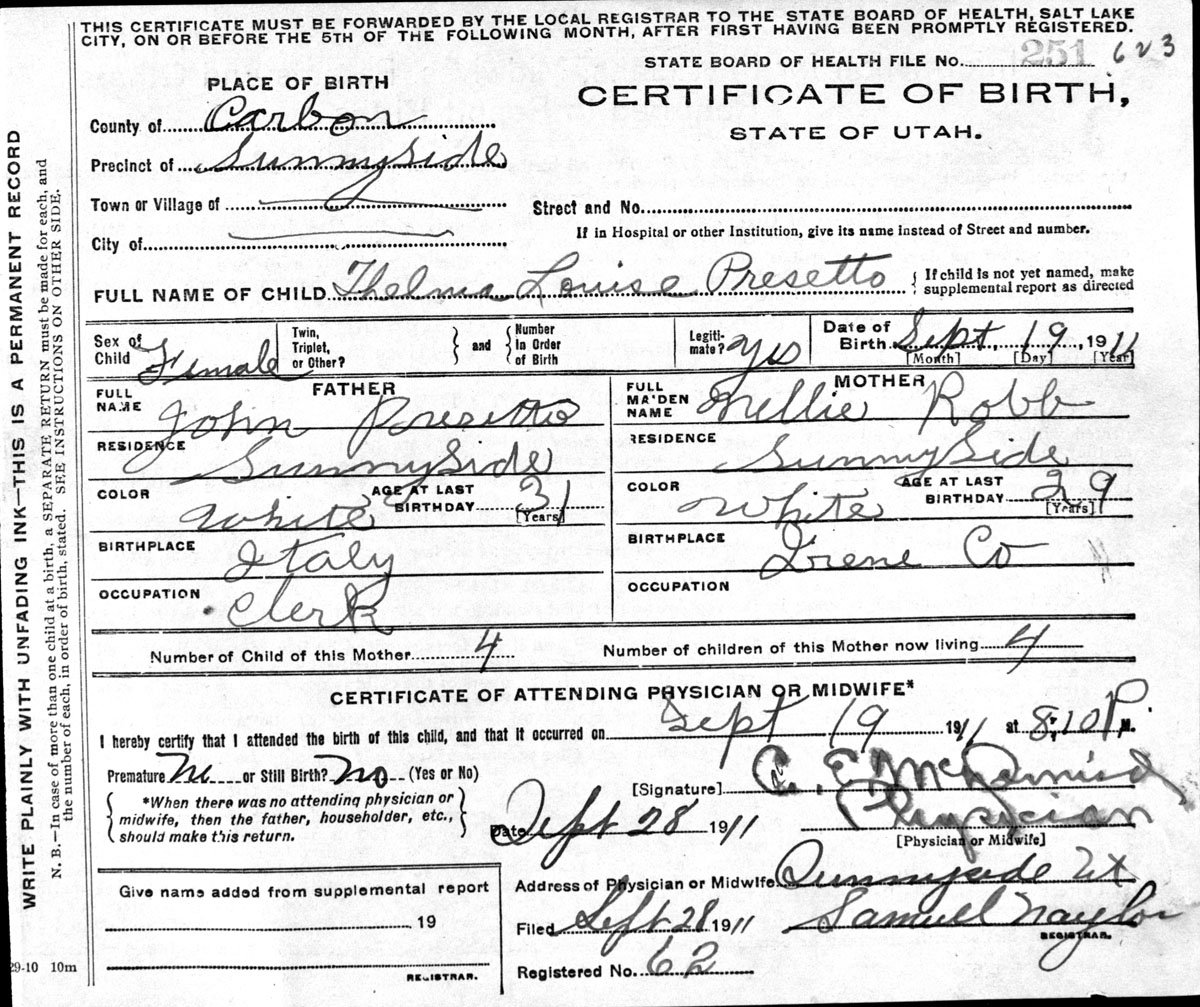 THIS CERTIFICATE MUST BE FORWARDED BY THE LOCAL REGISTRAR TO THE STATE BOARD OF HEALTH, SALT LAKE
CITY, ON OR BEFORE THE 5TH OF THE FOLLOWING MONTH, AFTER FIRST HAVING BEEN PROMPTLY REGISTERED.
STATE BOARD OF HEALTH FILE No. 251 623
PLACE OF BIRTH
CERTIFICATE OF BIRTH,
STATE OF UTAH.
County of Carbon
Precinct of Sunnyside
Town or Village of
Street and No.
City of
If in Hospital or other Institution, give its name instead of Street and number.
FULL NAME OF CHILD Thelma Louise Presetto { If child is not yet named, make
supplemental report as directed
Sex of Child Female
Twin, Triplet, or Other?
and
Number In Order of Birth
Legiti-mate? Yes
Date of Birth Sept, 19, 1911
[Month] [Day] [Year]
FATHER
FULL NAME John Presetto
RESIDENCE SunnySide
COLOR White
AGE AT LAST BIRTHDAY 31
[Years]
BIRTHPLACE Italy
OCCUPATION Clerk
MOTHER
FULL MAIDEN NAME Nellie Robb
RESIDENCE SunnySide
COLOR White
AGE AT LAST BIRTHDAY 29
[Years]
BIRTHPLACE Co
OCCUPATION
Number of Child of this Mother 4
Number of children of this Mother now living 4
CERTIFICATE OF ATTENDING PHYSICIAN OR MIDWIFE*
I hereby certify that I attended the birth of this child, and that it occurred on Sept 19 1911 at 8:10 P. M.
Premature No or Still Birth? No (Yes or No)
*When there was no attending physician or
midwife, then the father, householder, etc.,
should make this return.
[Signature] E
Physician
Date Sept 28 1911
[Physician or Midwife]
Give name added from supplemental report
19
REGISTRAR.
Address of Physician or Midwife Sunnyside Ut
Filed Sept 28 1911 Samuel Naylor
REGISTRAR.
Registered No. 62
29-10 10m
WRITE PLAINLY WITH UNFADING INK—THIS IS A PERMANENT RECORD
N. B.—In case of more than one child at a birth, a SEPARATE RETURN must be made for each, and
the number of each, in order of birth, stated. SEE INSTRUCTIONS ON OTHER SIDE.